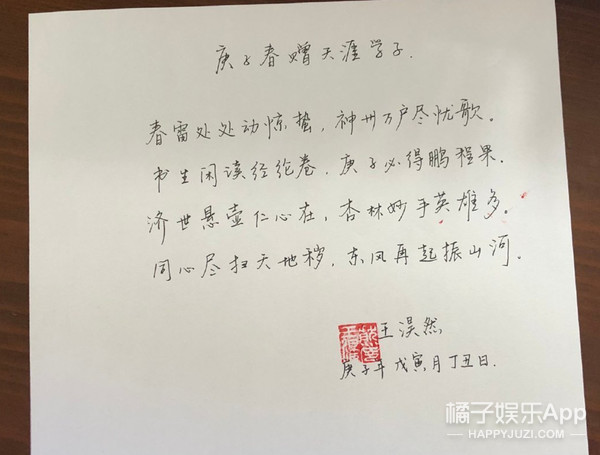 庚子春赠天涯学子.
春雷处处动惊蛰,神州万户尽忧歌.
书生闲读经纶卷.庚子必得鹏程果.
济世悬壶仁心在,杏林妙手英雄多.
同心尽扫天地秽.东风再起振山河.
王淏然
庚子年戊寅月丁丑日.
橘子娱乐App
—HAPPYJUZI.COM—